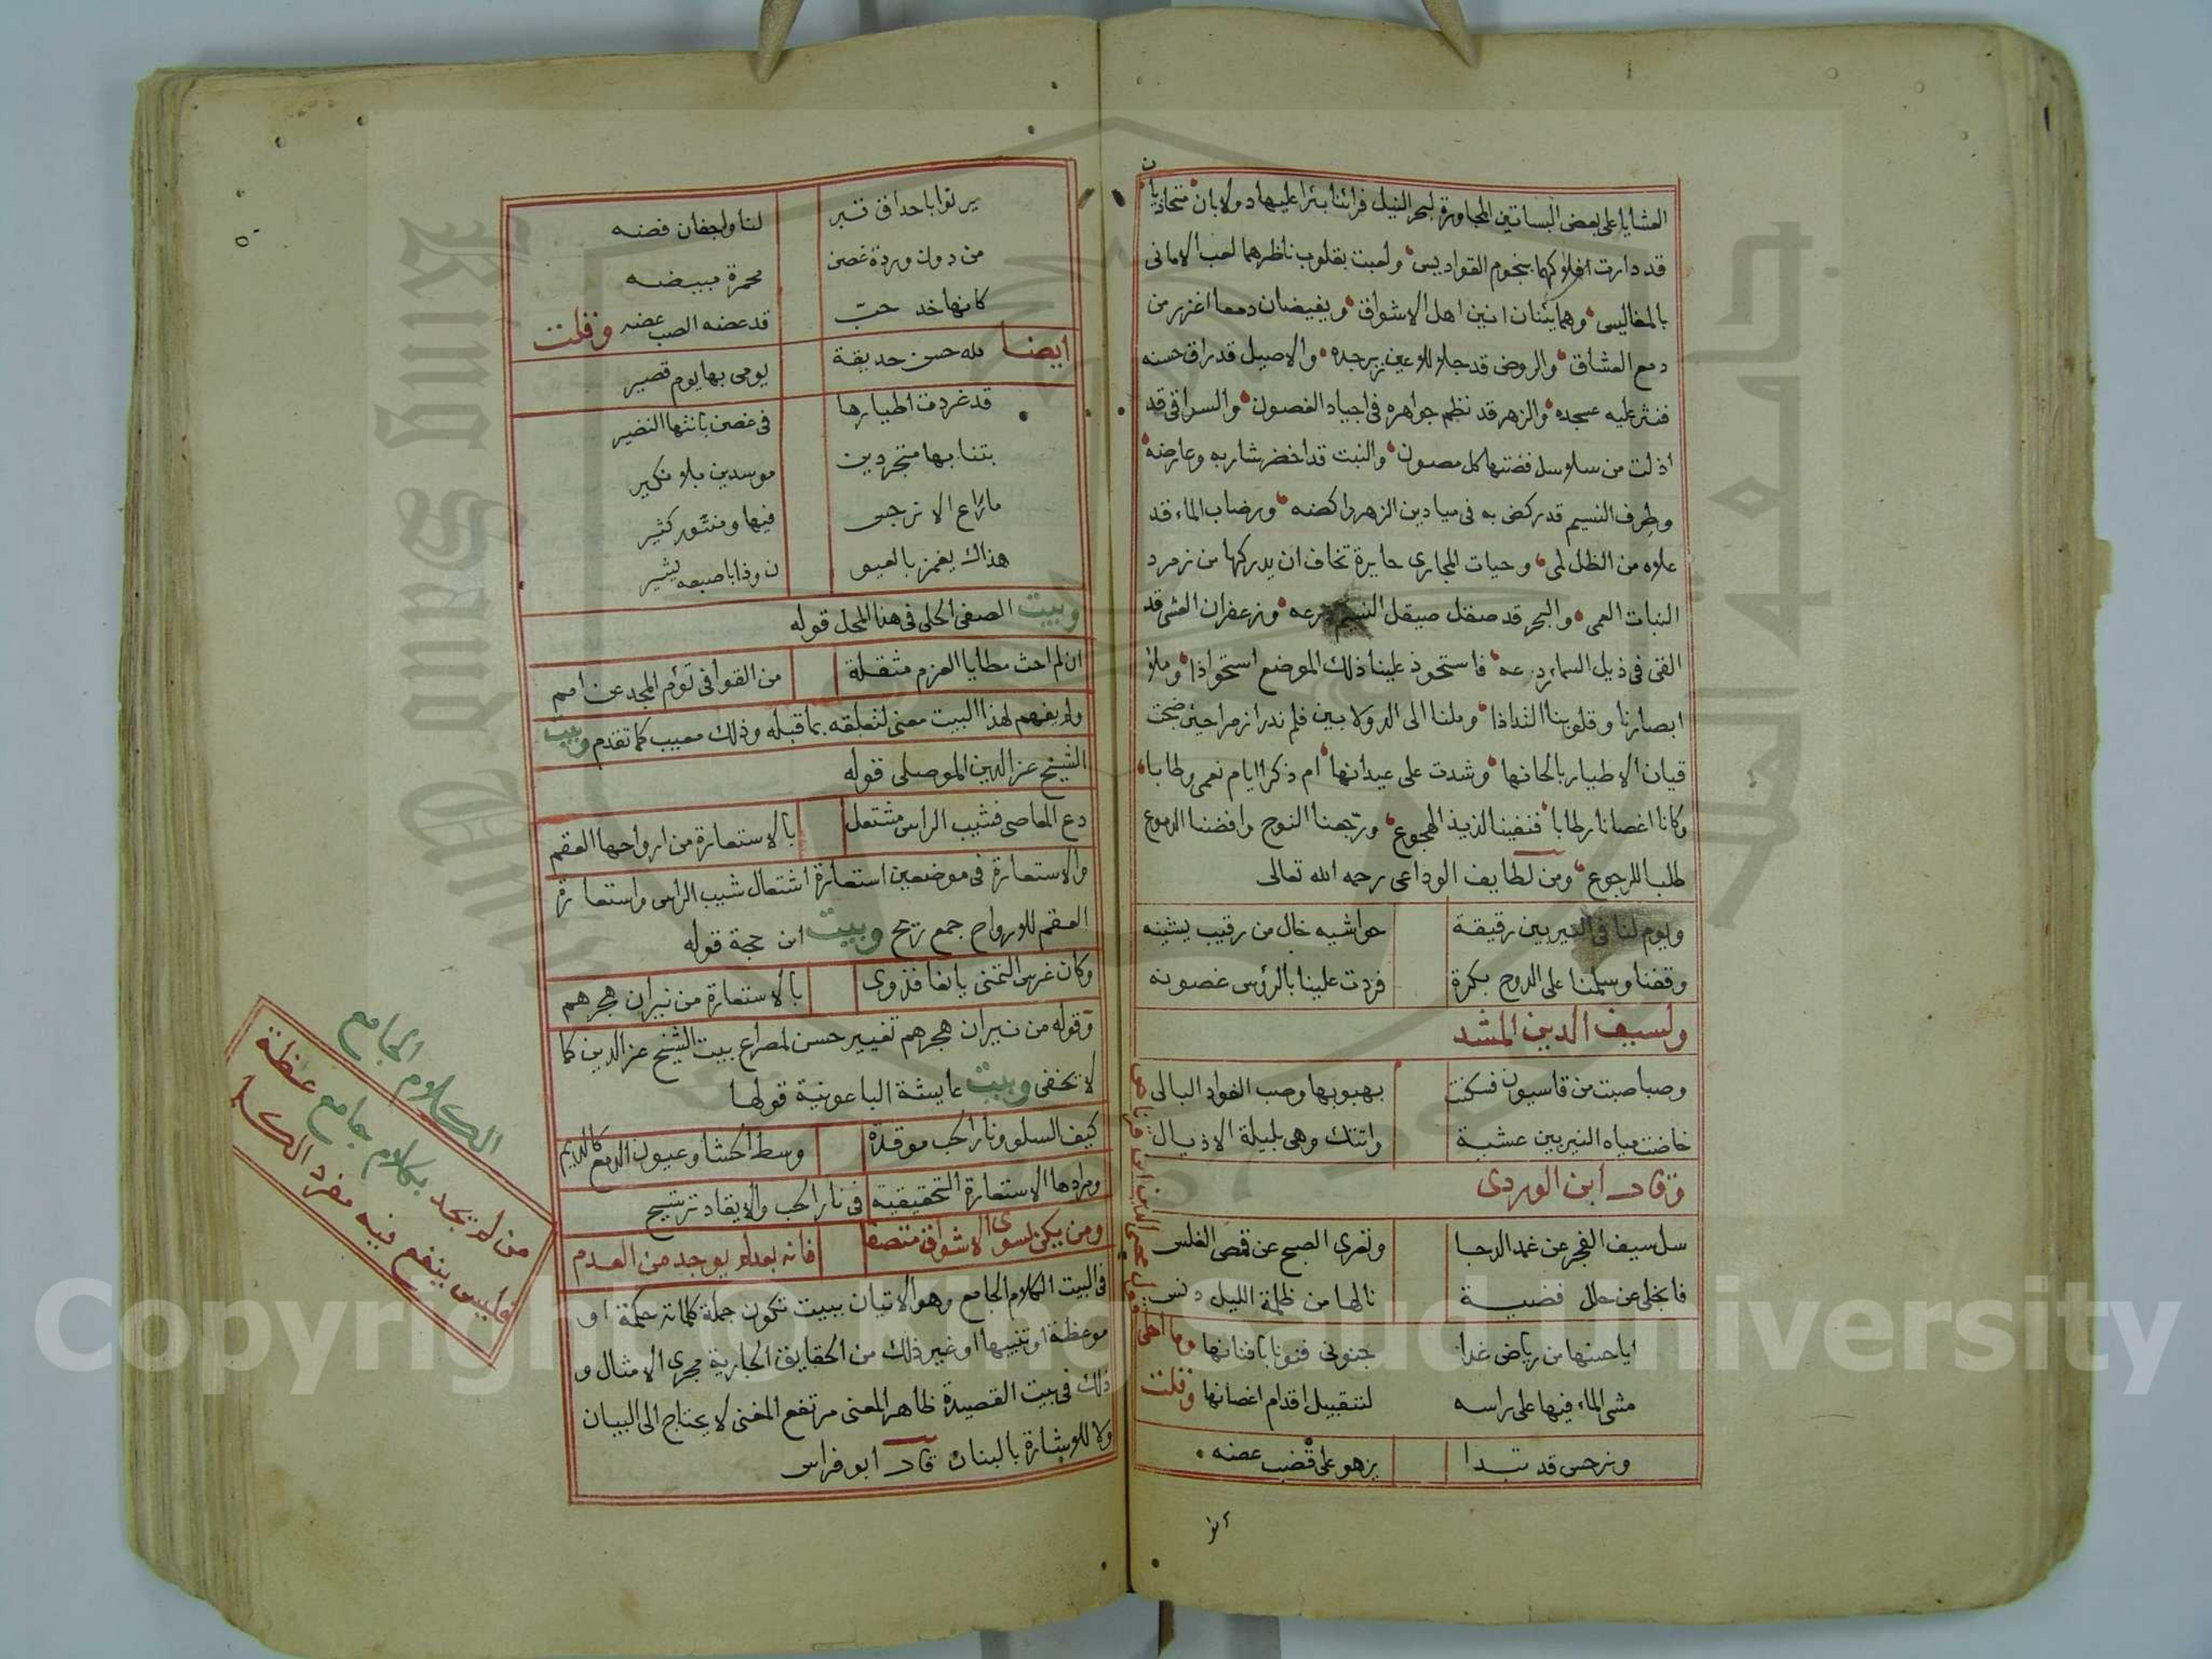 العشايا على بعض البساتين المجاورة لبحر النيل فرائنا بئرا عليها دولابان متحاذيان
قد دارت افلاكهما بنجوم القواديس ولعبت بقلوب ناظرهما لعب الامانى
بالمفاليس وهما يئنان انين اهل الاشواق ويفيضان دمعا اغزر من
دمع العشاق والروض قد جلا للاعين زبرجده والاصيل قد راق حسنه
فنثر عليه عسجده والزهر قد نظم جواهره فى اجياد الغصون والسواقى قد
اذلت من سلاسل فضتها كل مصون والنبت قد اخضر شاربه وعارضه
وطرف النسيم قد ركض به فى ميادين الزهر راكضه ورضاب الماء قد
علاه من الظل لمى وحيات المجارى حايرة تخاف ان يدركها من زمرد
النبات العمى والبحر قد صقل صيقل النسيم درعه وزعفران العشى قد
القى فى ذيل السماء ردعه فاستحوذ علينا ذلك الموضع استحواذا وملؤ
ابصارنا وقلوبنا التذاذا وملنا الى الدولابين فلم ندر ازمرا حين ضجت
قيان الاطيار بالحانها وشدت على عيدانها ام ذكرا ايام نعمى وطابا
وكانا اغصانا رطابا فنفينا لذيذ الهجوع ورجعنا النوح وافضنا الدموع
طلبا للرجوع ومن لطايف الوداعى رحمه الله تعالى
ويوم لنا فى النيربين رقيقة حواشيه خال من رقيب يشينه
وقفنا وسلمنا على الدوح بكرة فردت علينا بالرؤس غصونه
ولسيف الدين المشد
وصبا صبت من قاسيون فسكنت بهبوبها وصب الفواد البالى
خاضت مياه النيربين عشية واتتك وهى بليلة الاذيال
وقال ابن الوردى
سل سيف الفجر عن غمد الدجا وتعرى الصبح عن قمص الغلس
فانجلى عن حلل فضية نالها من ظلمة الليل دنس
وما احلى قول
ايا حسنها من رياض غدا جنونى فنونا بافنانها
مشى الماء فيها على راسه لتقبيل اقدام اغصانها وقلت
ونرجس قد تبدا يزهو على قضب غضنه
يرنوا باحداق تبر لنا واجفان فضه
من دون وردة غصن محمرة مبيضه
كانها خد حب قد عضه الصب عضه وقلت
ايضا لله حسن حديقة يومى بها يوم قصير
قد غردت اطيارها فى غصن بانتها النضير
بتنا بها متجردين موسدين بلا نكير
ما راع الا نرجس فيها ومنثور كثير
هذاك يغمز بالعيو ن وذا باصبعه يشير
وبيت الصفى الحلى فى هذا المحل قوله
ان لم احث مطايا العزم مثقلة من القوافى تؤم المجد عن امم
ولم يفهم لهذا البيت معنى لتعلقه بما قبله وذلك معيب كما تقدم وبيت
الشيخ عز الدين الموصلى قوله
دع المعاصى فشيب الراس مشتعل بالاستعارة من ارواحها العقم
والاستعارة فى موضعين استعارة اشتعال شيب الراس واستعارة
العقم للارواح جمع ريح وبيت ابن حجة قوله
وكان غرس التمنى يانعا فذوى بالاستعارة من نيران هجرهم
وقوله من نيران هجرهم تغيير حسن لمصراع بيت الشيخ عز الدين كما
لا يخفى وبيت عايشة الباعونية قولها
كيف السلو ونار الحب موقدة وسط الحشا وعيون الدمع كالديم
ومرادها الاستعارة التحقيقية فى نار الحب والايقاد ترشيح
ومن يكن بسوى الاشواق متصفا فانه بعد لم يوجد من العدم
فى البيت الكلام الجامع وهو الاتيان ببيت تكون جملة كلماته حكمة او
موعظة او تنبيها او غير ذلك من الحقايق الجارية مجرى الامثال و
ذلك فى بيت القصيدة ظاهر المعنى مرتفع المغنى لا يحتاج الى البيان
ولا للاشارة بالبنان قال ابو فراس
الكلام الجامع
من لا يجد بكلام جامع عظة
فليس ينفع فيه مفرد الكلم
Copyright © King Saud University